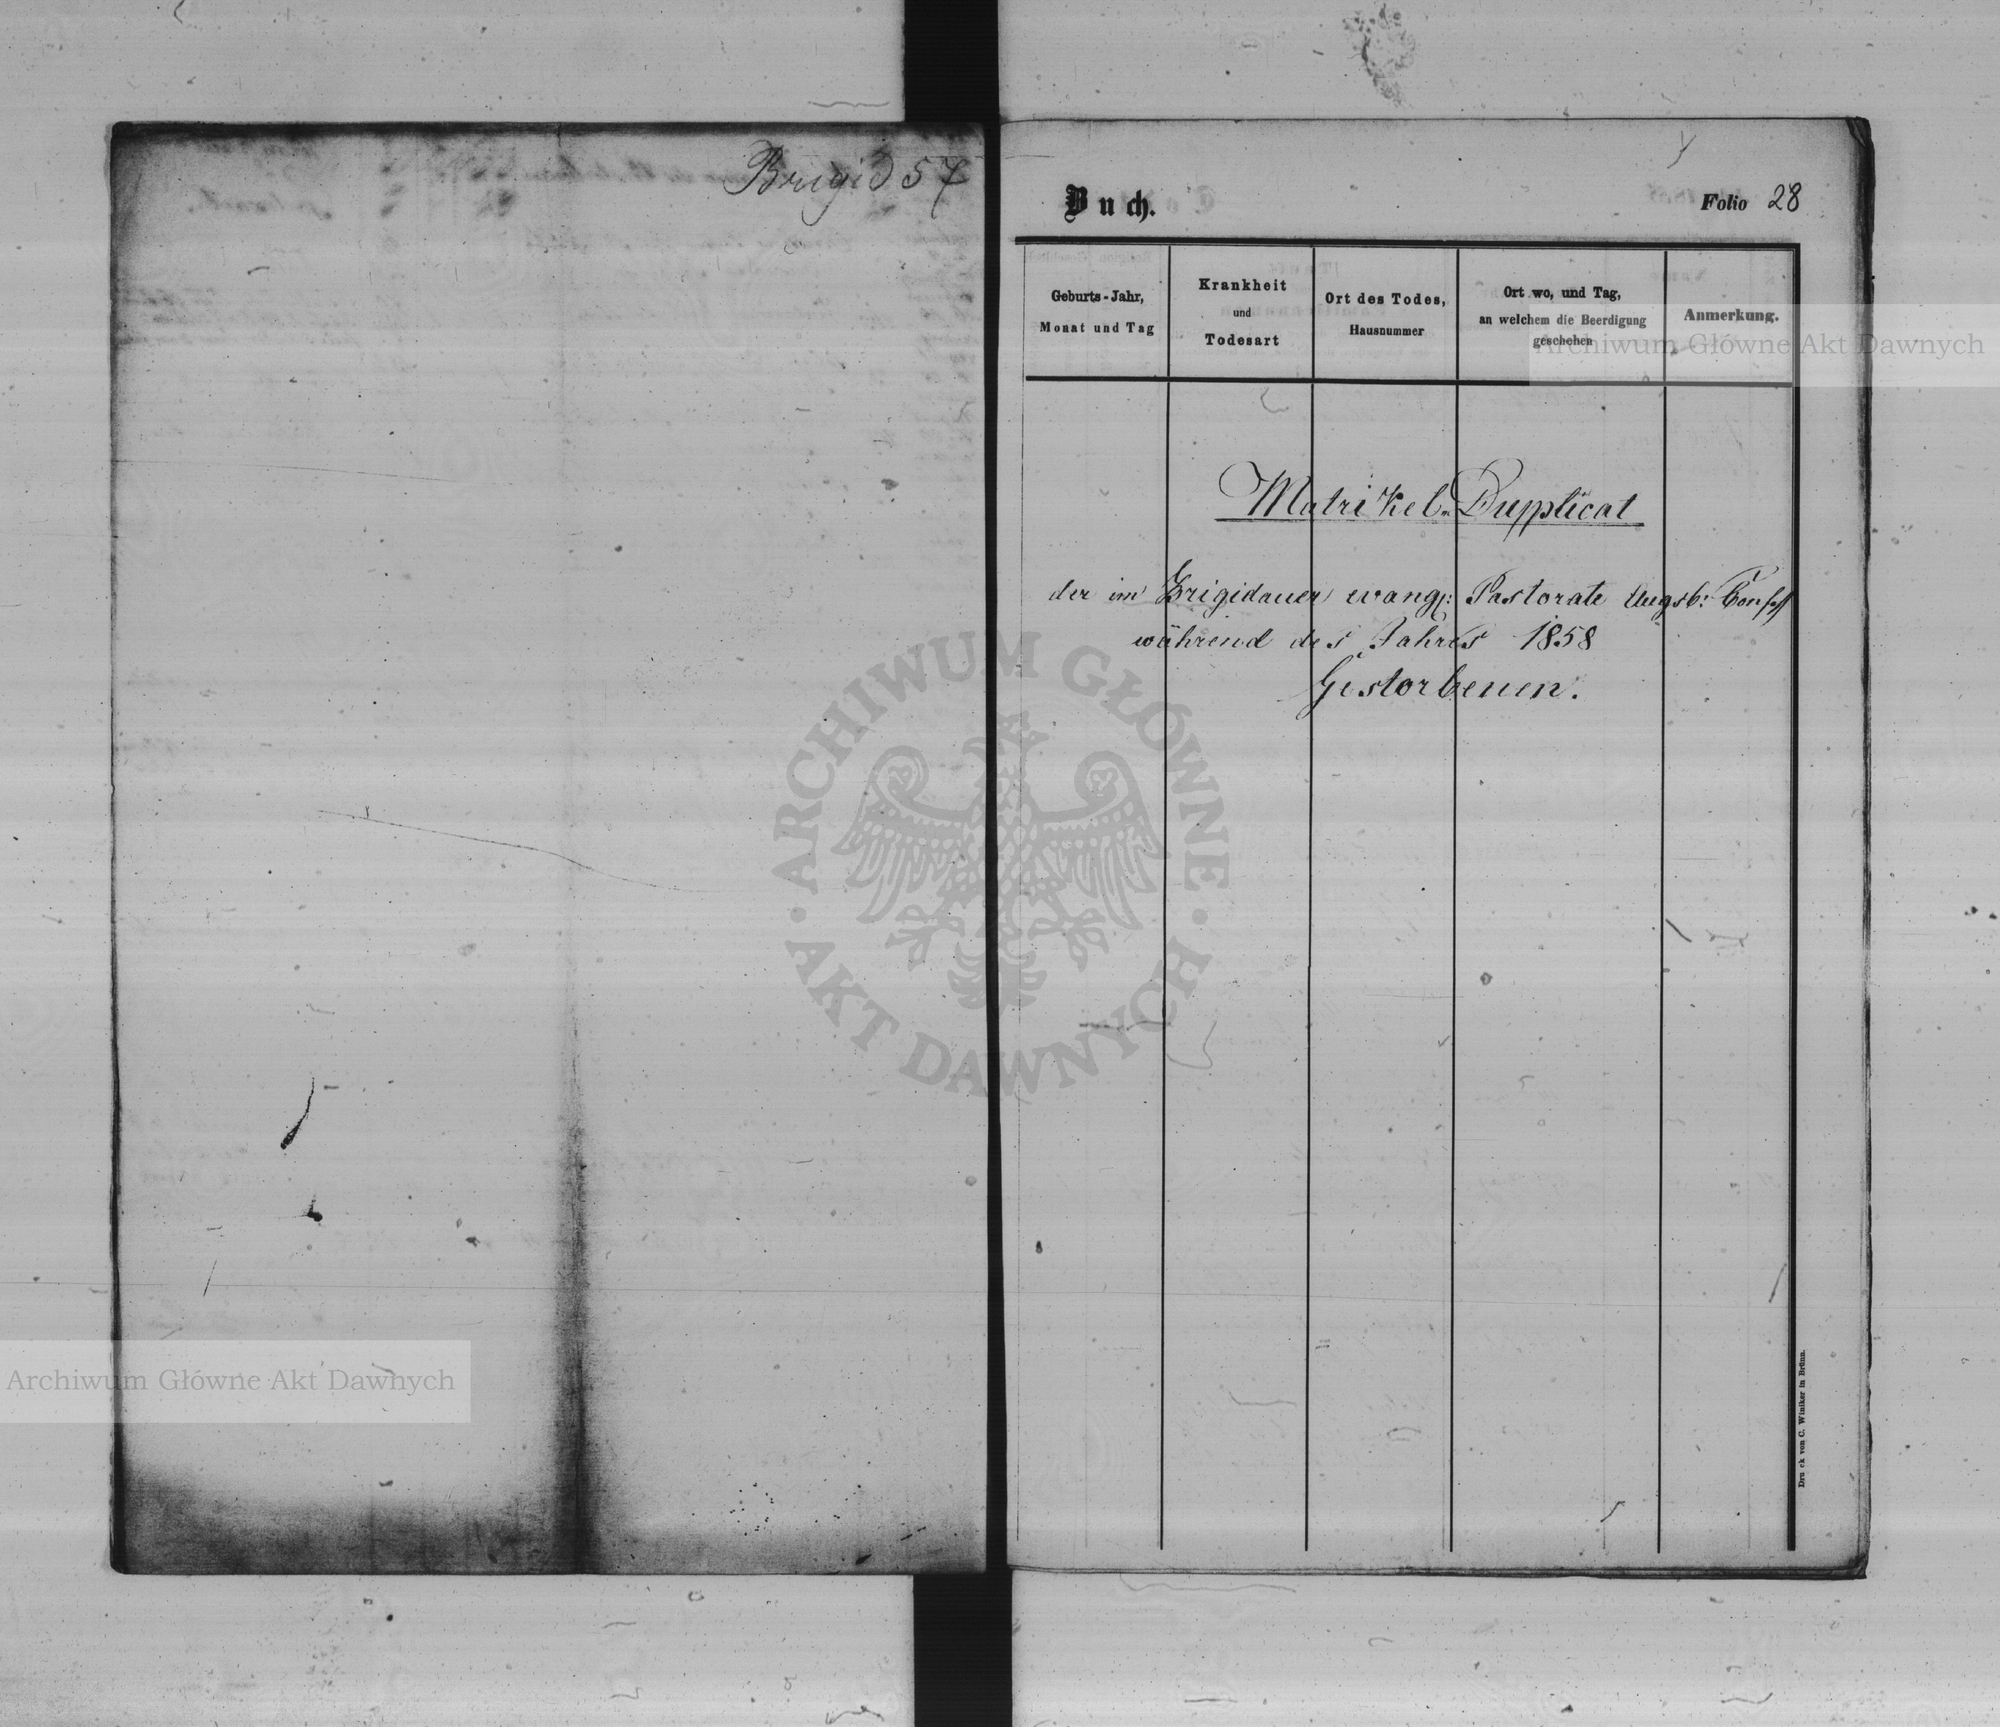 Brigid 57
Buch.
Folio 28
Geburts-Jahr,
Monat und Tag
Krankheit
und
Todesart
Ort des Todes,
Hausnummer
Ort wo, und Tag,
an welchem die Beerdigung
geschehen
Anmerkung.
Archiwum Główne Akt Dawnych
Matrikel-Dupplicat
der im Brigidauer evangl: Pastorate Augsb: Conf
während des Jahres 1858
Gestorbenen.
ARCHIWUM GŁÓWNE · AKT DAWNYCH ·
Archiwum Główne Akt Dawnych
Druck von C. Winiker in Brünn.